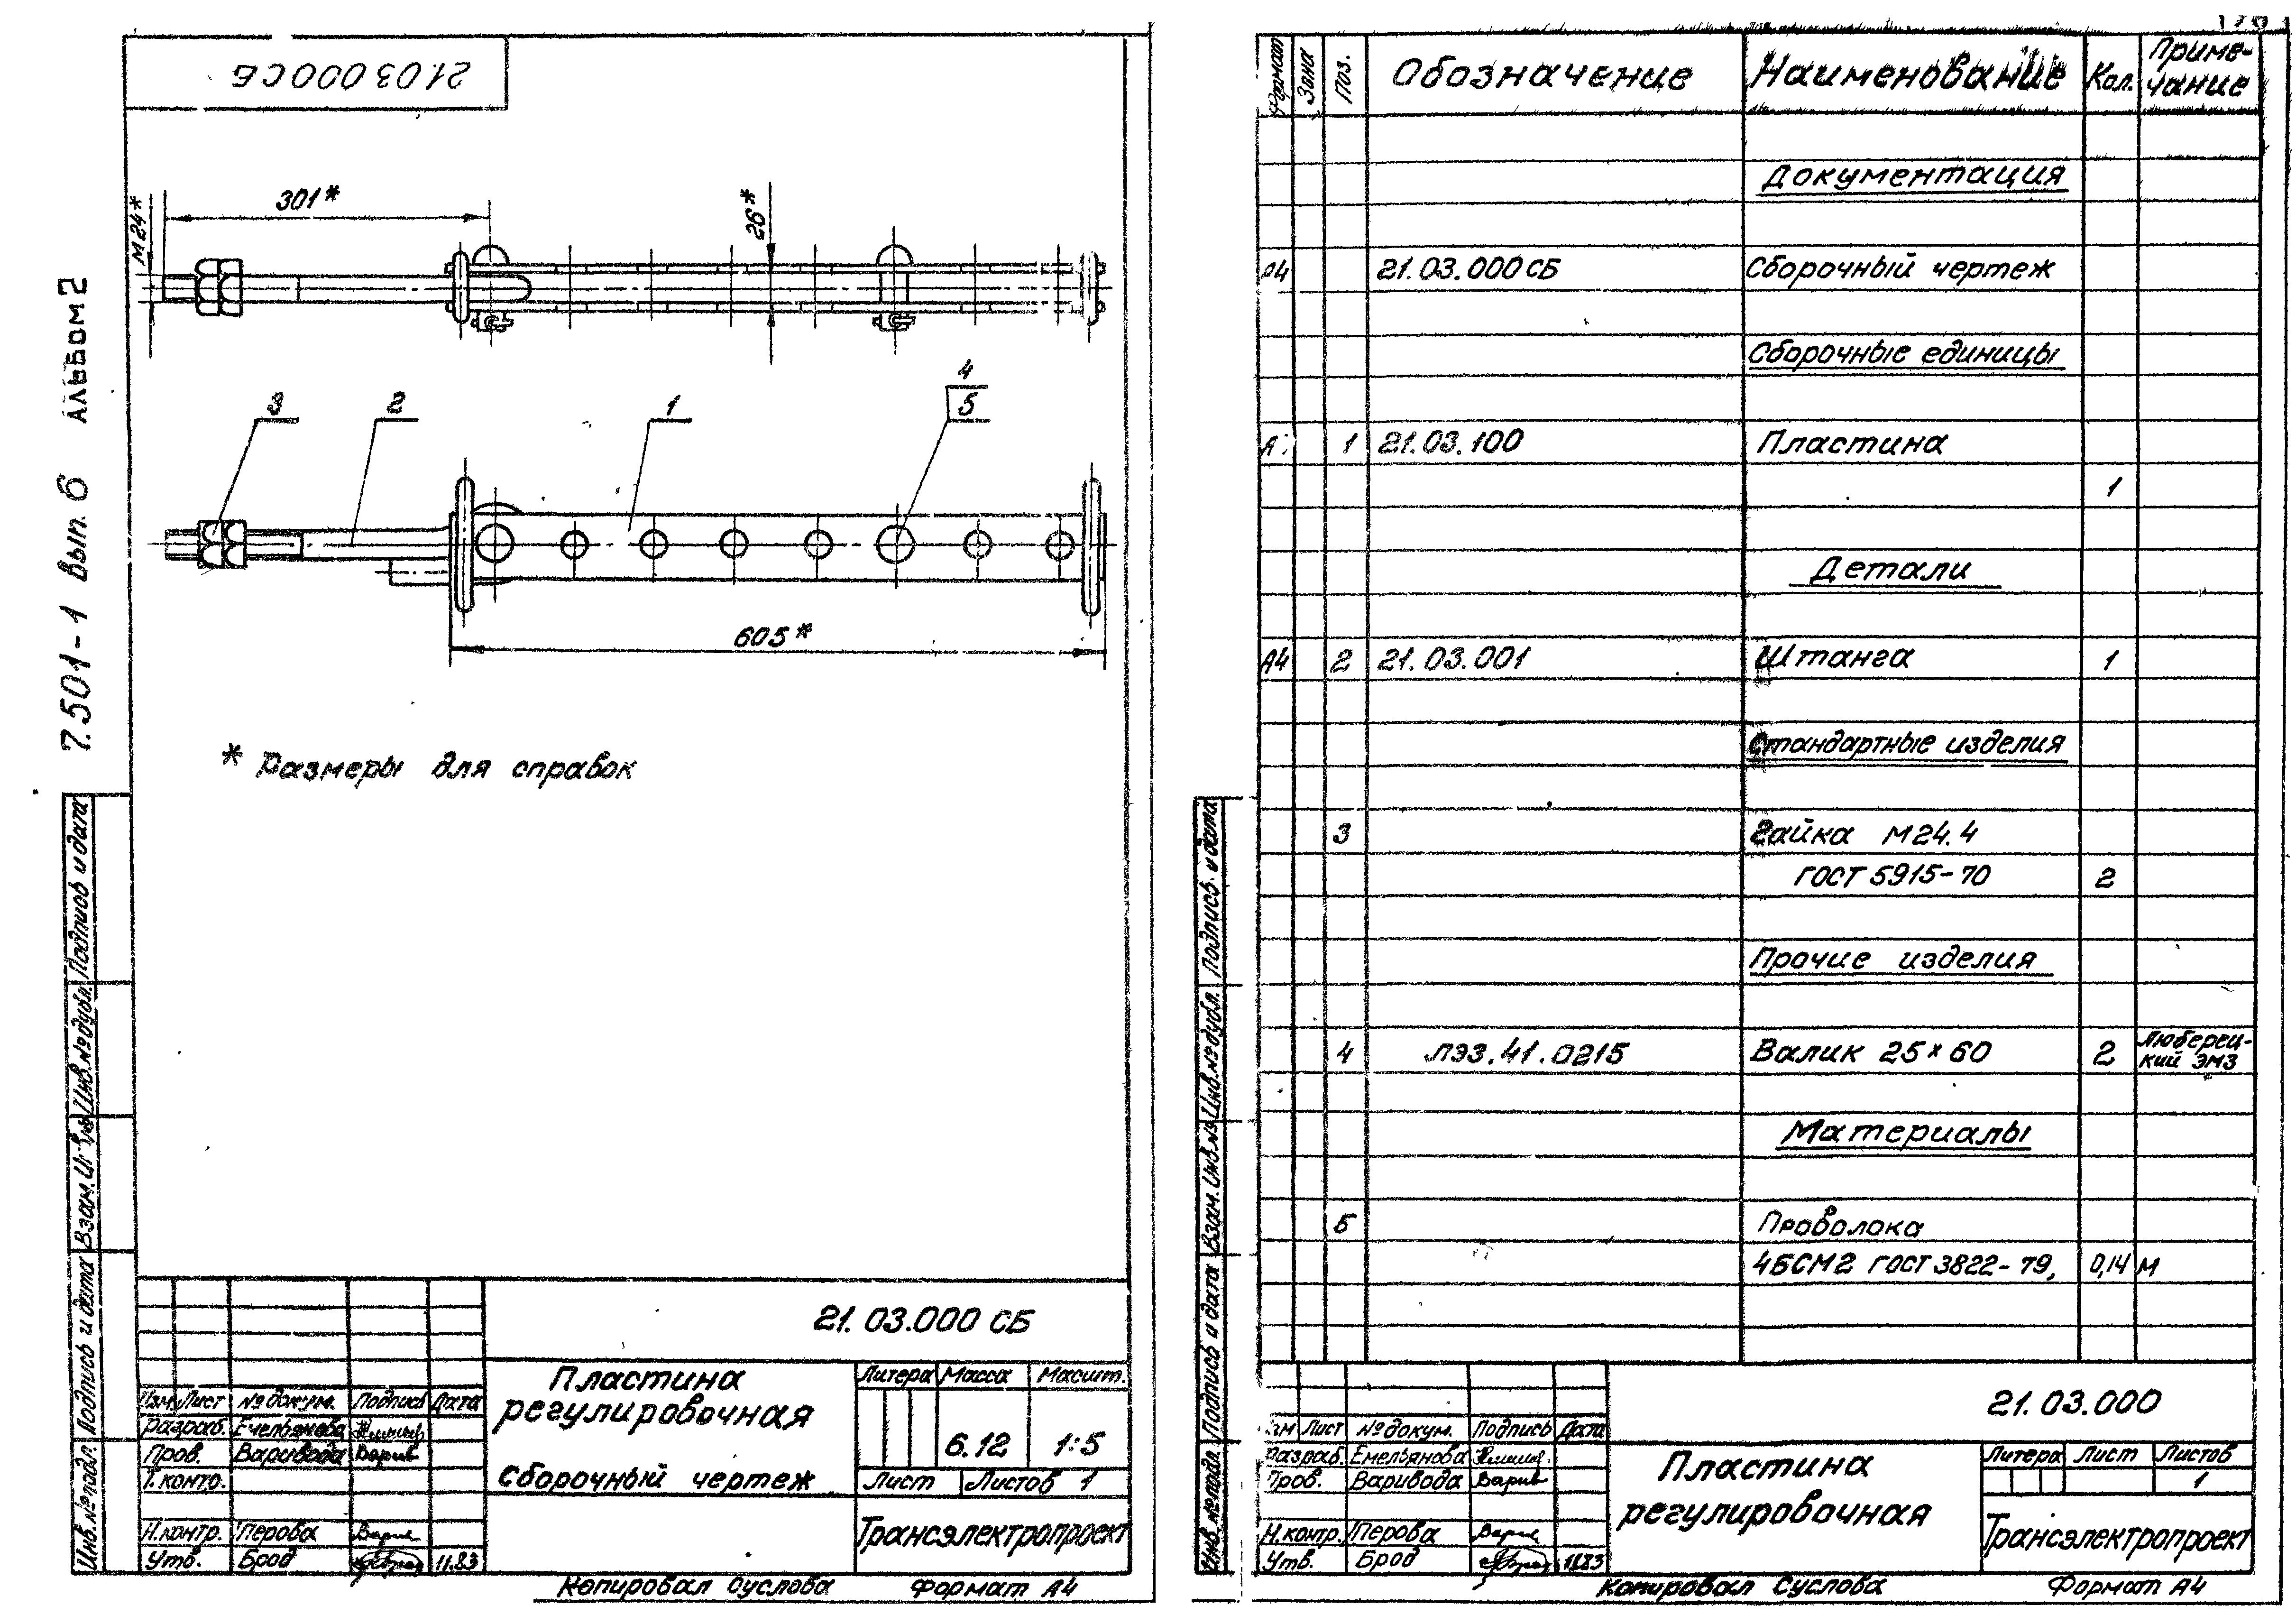 21 03 000 СБ
7.501-1 вып. 6 Альбом 2
301*
М24*
26*
3
2
1
4
5
605*
* Размеры для справок
Подпись и дата
Инв.№дубл.
Взам.
Подпись и дата
Инв.№подл.
21.03.000 СБ
Изм. Лист №докум. Подпись Дата
Разраб. Емельянова
Пров. Варивода
Т.контр.
Н.контр. Перова
Утв. Брод 11.83
Пластина
регулировочная
Сборочный чертеж
Литера Масса Масшт.
6.12 1:5
Лист Листов 1
Трансэлектропроект
Копировал Суслова Формат А4
Формат Зона Поз. Обозначение Наименование Кол. Приме-
чание
Документация
А4 21.03.000СБ Сборочный чертеж
Сборочные единицы
1 21.03.100 Пластина
1
Детали
А4 2 21.03.001 Штанга 1
Стандартные изделия
3 Гайка М24.4
ГОСТ 5915-70 2
Прочие изделия
4 ЛЭЗ.41.0215 Валик 25×60 2 Люберец-
кий ЭМЗ
Материалы
5 Проволока
4БСМ2 ГОСТ 3822-79, 0,14 м
Подпись и дата
Инв.№дубл.
Взам. Инв.№
Подпись и дата
Инв.№подл.
21.03.000
Лист №докум. Подпись Дата
Разраб. Емельянова
Пров. Варивода
Н.контр. Перова
Утв. Брод 11.83
Пластина
регулировочная
Литера Лист Листов
1
Трансэлектропроект
Копировал Суслова Формат А4